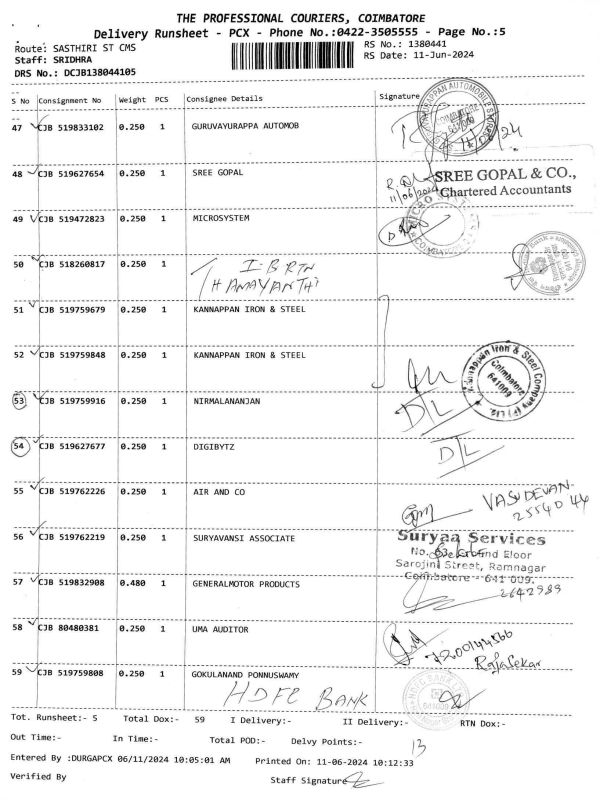 THE PROFESSIONAL COURIERS, COIMBATORE
Delivery Runsheet - PCX - Phone No.:0422-3505555 - Page No.:5
Route: SASTHIRI ST CMS
RS No.: 1380441
Staff: SRIDHRA
RS Date: 11-Jun-2024
DRS No.: DCJB138044105
S No Consignment No Weight PCS Consignee Details Signature
47 CJB 519833102 0.250 1 GURUVAYURAPPA AUTOMOB
48 CJB 519627654 0.250 1 SREE GOPAL
11/06/2024
SREE GOPAL & CO.,
Chartered Accountants
49 CJB 519472823 0.250 1 MICROSYSTEM
50 CJB 518260817 0.250 1
51 CJB 519759679 0.250 1 KANNAPPAN IRON & STEEL
52 CJB 519759848 0.250 1 KANNAPPAN IRON & STEEL
Kannappan Iron & Steel Company (P) Ltd.
Coimbatore
641009
53 CJB 519759916 0.250 1 NIRMALANANJAN
D/L
54 CJB 519627677 0.250 1 DIGIBYTZ
D/L
55 CJB 519762226 0.250 1 AIR AND CO
VASUDEVAN
56 CJB 519762219 0.250 1 SURYAVANSI ASSOCIATE
Suryaa Services
Sarojini Street, Ramnagar
Coimbatore - 641 009.
57 CJB 519832908 0.480 1 GENERALMOTOR PRODUCTS
2642989
58 CJB 80480381 0.250 1 UMA AUDITOR
Rajasekar
59 CJB 519759808 0.250 1 GOKULANAND PONNUSWAMY
HDFC BANK
Tot. Runsheet:- 5 Total Dox:- 59 I Delivery:- II Delivery:- RTN Dox:-
Out Time:- In Time:- Total POD:- Delvy Points:- 13
Entered By :DURGAPCX 06/11/2024 10:05:01 AM Printed On: 11-06-2024 10:12:33
Verified By Staff Signature